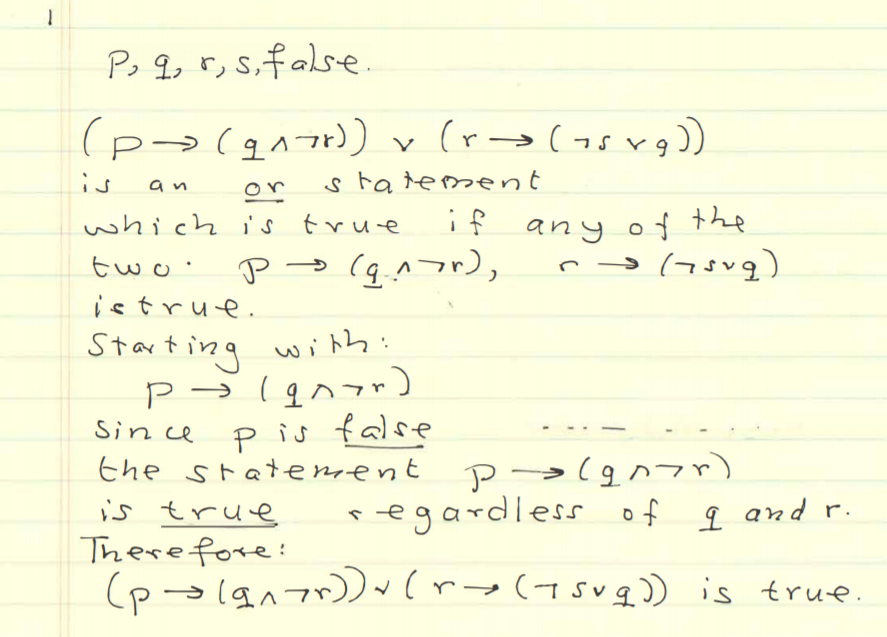 1
p, q, r, s, false.
(p → (q ∧ ¬r)) ∨ (r → (¬s ∨ q))
is an or statement
which is true if any of the
two: p → (q ∧ ¬r), r → (¬s ∨ q)
is true.
Starting with:
p → (q ∧ ¬r)
since p is false
the statement p → (q ∧ ¬r)
is true regardless of q and r.
Therefore:
(p → (q ∧ ¬r)) ∨ (r → (¬s ∨ q)) is true.